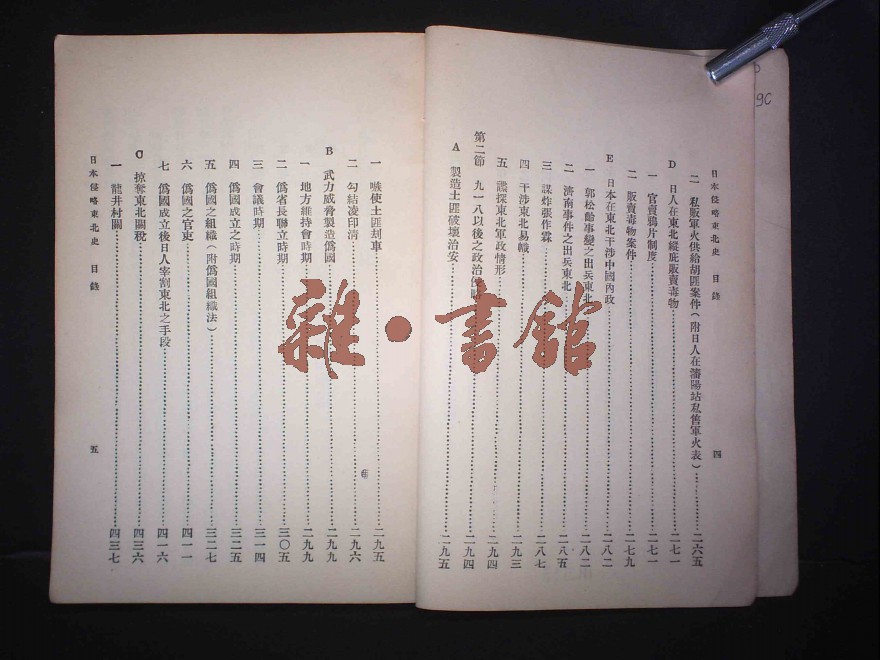 日本侵略東北史 目錄 四
二 私販軍火供給胡匪案件(附日人在瀋陽站私售軍火表)二六五
D 日人在東北縱庇販賣毒物二七一
一 官賣鴉片制度二七一
二 販賣毒物案件二七九
E 日本在東北干涉中國內政二八二
一 郭松齡事變之出兵東北二八二
二 濟南事件之出兵東北二八五
三 謀炸張作霖二八七
四 干涉東北易幟二九三
五 諜探東北軍政情形二九四
第二節 九一八以後之政治侵略二九四
A 製造土匪破壞治安二九五
一 嗾使土匪刦車二九五
二 勾結凌印清二九六
B 武力威脅製造僞國二九九
一 地方維持會時期二九九
二 僞省長聯立時期三〇五
三 會議時期三一四
四 僞國成立之時期三二五
五 僞國之組織(附僞國組織法)三二七
六 僞國之官吏四一一
七 僞國成立後日人宰割東北之手段四一六
C 掠奪東北關稅四三六
一 龍井村關四三七
日本侵略東北史 目錄 五
雜·書館
9C